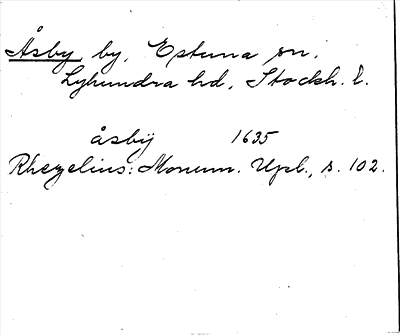 Åsby, by, Estuna sn.
Lyhundra hd, Stockh. l.
åsbÿ 1635
Rhezelius: Monum. Upl., s. 102.